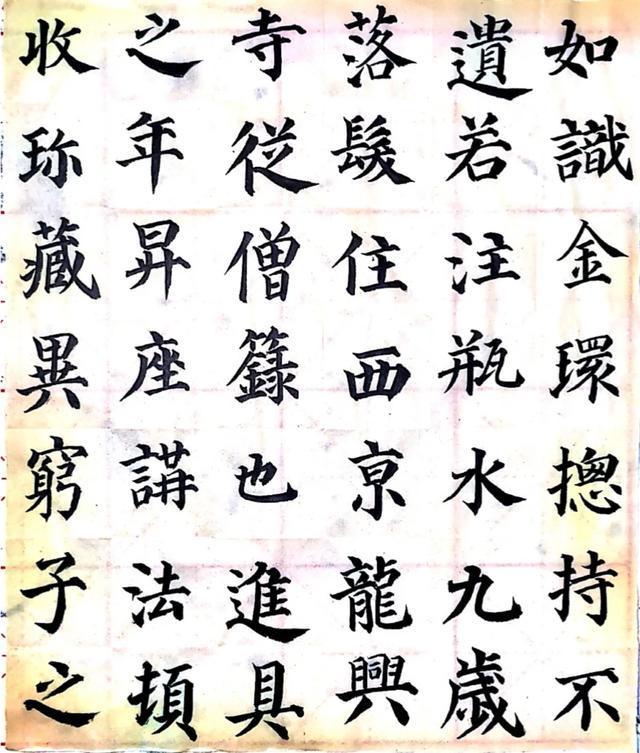 如識金環摠持不
遺若注瓶水九歲
落髮住西京龍興
寺從僧籙也進具
之年昇座講法頓
收珎藏異窮子之